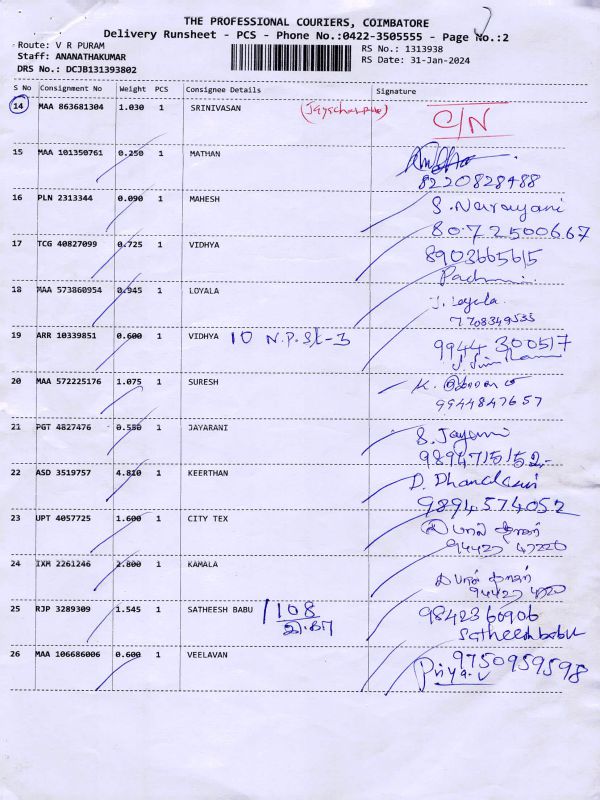 THE PROFESSIONAL COURIERS, COIMBATORE
Delivery Runsheet - PCS - Phone No.:0422-3505555 - Page No.:2
Route: V R PURAM
RS No.: 1313938
Staff: ANANATHAKUMAR
RS Date: 31-Jan-2024
DRS No.: DCJB131393802
S No Consignment No Weight PCS Consignee Details Signature
14 MAA 863681304 1.030 1 SRINIVASAN C/N
15 MAA 101350761 0.250 1 MATHAN
8220828488
16 PLN 2313344 0.090 1 MAHESH S. Narayani
8072500667
17 TCG 40827099 0.725 1 VIDHYA 8903665615
18 MAA 573860954 0.945 1 LOYALA J. Loyala
7708349535
19 ARR 10339851 0.600 1 VIDHYA 10 N.P. St-3 9944 300517
20 MAA 572225176 1.075 1 SURESH K.
9944847657
21 PGT 4827476 0.550 1 JAYARANI S. Jayarani
9894715152
22 ASD 3519757 4.810 1 KEERTHAN D.
9894574052
23 UPT 4057725 1.600 1 CITY TEX
94427 47220
24 IXM 2261246 2.800 1 KAMALA
94427
25 RJP 3289309 1.545 1 SATHEESH BABU 108 9842360906
Satheeshbabu
26 MAA 106686006 0.600 1 VEELAVAN 9750959598
Priya. V